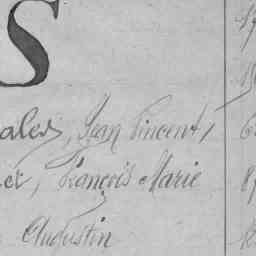 S
ales, Jean Vincent
et, François Marie
Augustin